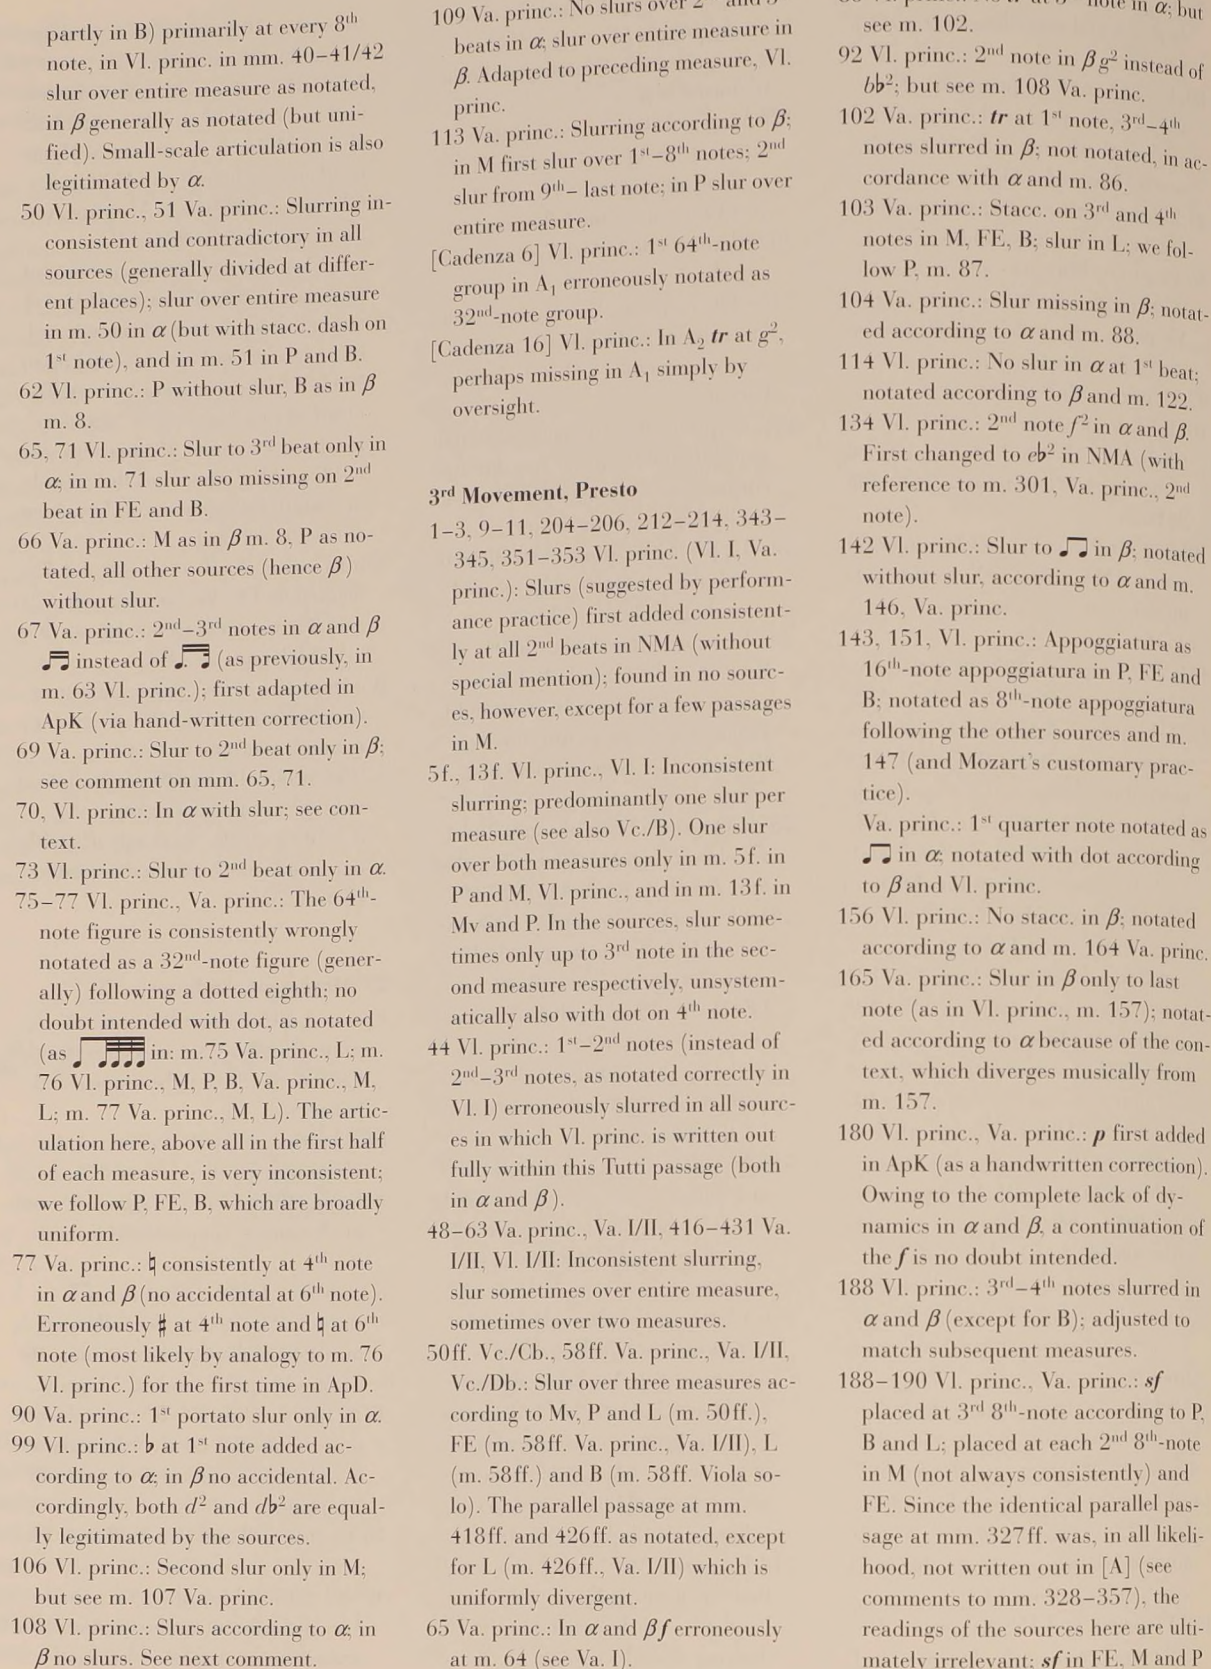 partly in B) primarily at every 8th
note, in Vl. princ. in mm. 40–41/42
slur over entire measure as notated,
in β generally as notated (but uni-
fied). Small-scale articulation is also
legitimated by α.
50 Vl. princ., 51 Va. princ.: Slurring in-
consistent and contradictory in all
sources (generally divided at differ-
ent places); slur over entire measure
in m. 50 in α (but with stacc. dash on
1st note), and in m. 51 in P and B.
62 Vl. princ.: P without slur, B as in β
m. 8.
65, 71 Vl. princ.: Slur to 3rd beat only in
α; in m. 71 slur also missing on 2nd
beat in FE and B.
66 Va. princ.: M as in β m. 8, P as no-
tated, all other sources (hence β)
without slur.
67 Va. princ.: 2nd–3rd notes in α and β
instead of (as previously, in
m. 63 Vl. princ.); first adapted in
ApK (via hand-written correction).
69 Va. princ.: Slur to 2nd beat only in β;
see comment on mm. 65, 71.
70, Vl. princ.: In α with slur; see con-
text.
73 Vl. princ.: Slur to 2nd beat only in α.
75–77 Vl. princ., Va. princ.: The 64th-
note figure is consistently wrongly
notated as a 32nd-note figure (gener-
ally) following a dotted eighth; no
doubt intended with dot, as notated
(as in: m.75 Va. princ., L; m.
76 Vl. princ., M, P, B, Va. princ., M,
L; m. 77 Va. princ., M, L). The artic-
ulation here, above all in the first half
of each measure, is very inconsistent;
we follow P, FE, B, which are broadly
uniform.
77 Va. princ.: ♮ consistently at 4th note
in α and β (no accidental at 6th note).
Erroneously ♯ at 4th note and ♮ at 6th
note (most likely by analogy to m. 76
Vl. princ.) for the first time in ApD.
90 Va. princ.: 1st portato slur only in α.
99 Vl. princ.: ♭ at 1st note added ac-
cording to α; in β no accidental. Ac-
cordingly, both d2 and d♭2 are equal-
ly legitimated by the sources.
106 Vl. princ.: Second slur only in M;
but see m. 107 Va. princ.
108 Vl. princ.: Slurs according to α; in
β no slurs. See next comment.
109 Va. princ.: No slurs over 2nd and 3rd
beats in α; slur over entire measure in
β. Adapted to preceding measure, Vl.
princ.
113 Va. princ.: Slurring according to β;
in M first slur over 1st–8th notes; 2nd
slur from 9th– last note; in P slur over
entire measure.
[Cadenza 6] Vl. princ.: 1st 64th-note
group in A1 erroneously notated as
32nd-note group.
[Cadenza 16] Vl. princ.: In A2 tr at g2,
perhaps missing in A1 simply by
oversight.
3rd Movement, Presto
1–3, 9–11, 204–206, 212–214, 343–
345, 351–353 Vl. princ. (Vl. I, Va.
princ.): Slurs (suggested by perform-
ance practice) first added consistent-
ly at all 2nd beats in NMA (without
special mention); found in no sourc-
es, however, except for a few passages
in M.
5f., 13f. Vl. princ., Vl. I: Inconsistent
slurring; predominantly one slur per
measure (see also Vc./B). One slur
over both measures only in m. 5f. in
P and M, Vl. princ., and in m. 13f. in
Mv and P. In the sources, slur some-
times only up to 3rd note in the sec-
ond measure respectively, unsystem-
atically also with dot on 4th note.
44 Vl. princ.: 1st–2nd notes (instead of
2nd–3rd notes, as notated correctly in
Vl. I) erroneously slurred in all sourc-
es in which Vl. princ. is written out
fully within this Tutti passage (both
in α and β).
48–63 Va. princ., Va. I/II, 416–431 Va.
I/II, Vl. I/II: Inconsistent slurring,
slur sometimes over entire measure,
sometimes over two measures.
50ff. Vc./Cb., 58ff. Va. princ., Va. I/II,
Vc./Db.: Slur over three measures ac-
cording to Mv, P and L (m. 50ff.),
FE (m. 58ff. Va. princ., Va. I/II), L
(m. 58ff.) and B (m. 58ff. Viola so-
lo). The parallel passage at mm.
418ff. and 426ff. as notated, except
for L (m. 426ff., Va. I/II) which is
uniformly divergent.
65 Va. princ.: In α and β f erroneously
at m. 64 (see Va. I).
note in α; but
see m. 102.
92 Vl. princ.: 2nd note in β g2 instead of
b♭2; but see m. 108 Va. princ.
102 Va. princ.: tr at 1st note, 3rd–4th
notes slurred in β; not notated, in ac-
cordance with α and m. 86.
103 Va. princ.: Stacc. on 3rd and 4th
notes in M, FE, B; slur in L; we fol-
low P, m. 87.
104 Va. princ.: Slur missing in β; notat-
ed according to α and m. 88.
114 Vl. princ.: No slur in α at 1st beat;
notated according to β and m. 122.
134 Vl. princ.: 2nd note f2 in α and β.
First changed to e♭2 in NMA (with
reference to m. 301, Va. princ., 2nd
note).
142 Vl. princ.: Slur to ♫ in β; notated
without slur, according to α and m.
146, Va. princ.
143, 151, Vl. princ.: Appoggiatura as
16th-note appoggiatura in P, FE and
B; notated as 8th-note appoggiatura
following the other sources and m.
147 (and Mozart's customary prac-
tice).
Va. princ.: 1st quarter note notated as
♫ in α; notated with dot according
to β and Vl. princ.
156 Vl. princ.: No stacc. in β; notated
according to α and m. 164 Va. princ.
165 Va. princ.: Slur in β only to last
note (as in Vl. princ., m. 157); notat-
ed according to α because of the con-
text, which diverges musically from
m. 157.
180 Vl. princ., Va. princ.: p first added
in ApK (as a handwritten correction).
Owing to the complete lack of dy-
namics in α and β, a continuation of
the f is no doubt intended.
188 Vl. princ.: 3rd–4th notes slurred in
α and β (except for B); adjusted to
match subsequent measures.
188–190 Vl. princ., Va. princ.: sf
placed at 3rd 8th-note according to P,
B and L; placed at each 2nd 8th-note
in M (not always consistently) and
FE. Since the identical parallel pas-
sage at mm. 327ff. was, in all likeli-
hood, not written out in [A] (see
comments to mm. 328–357), the
readings of the sources here are ulti-
mately irrelevant; sf in FE, M and P